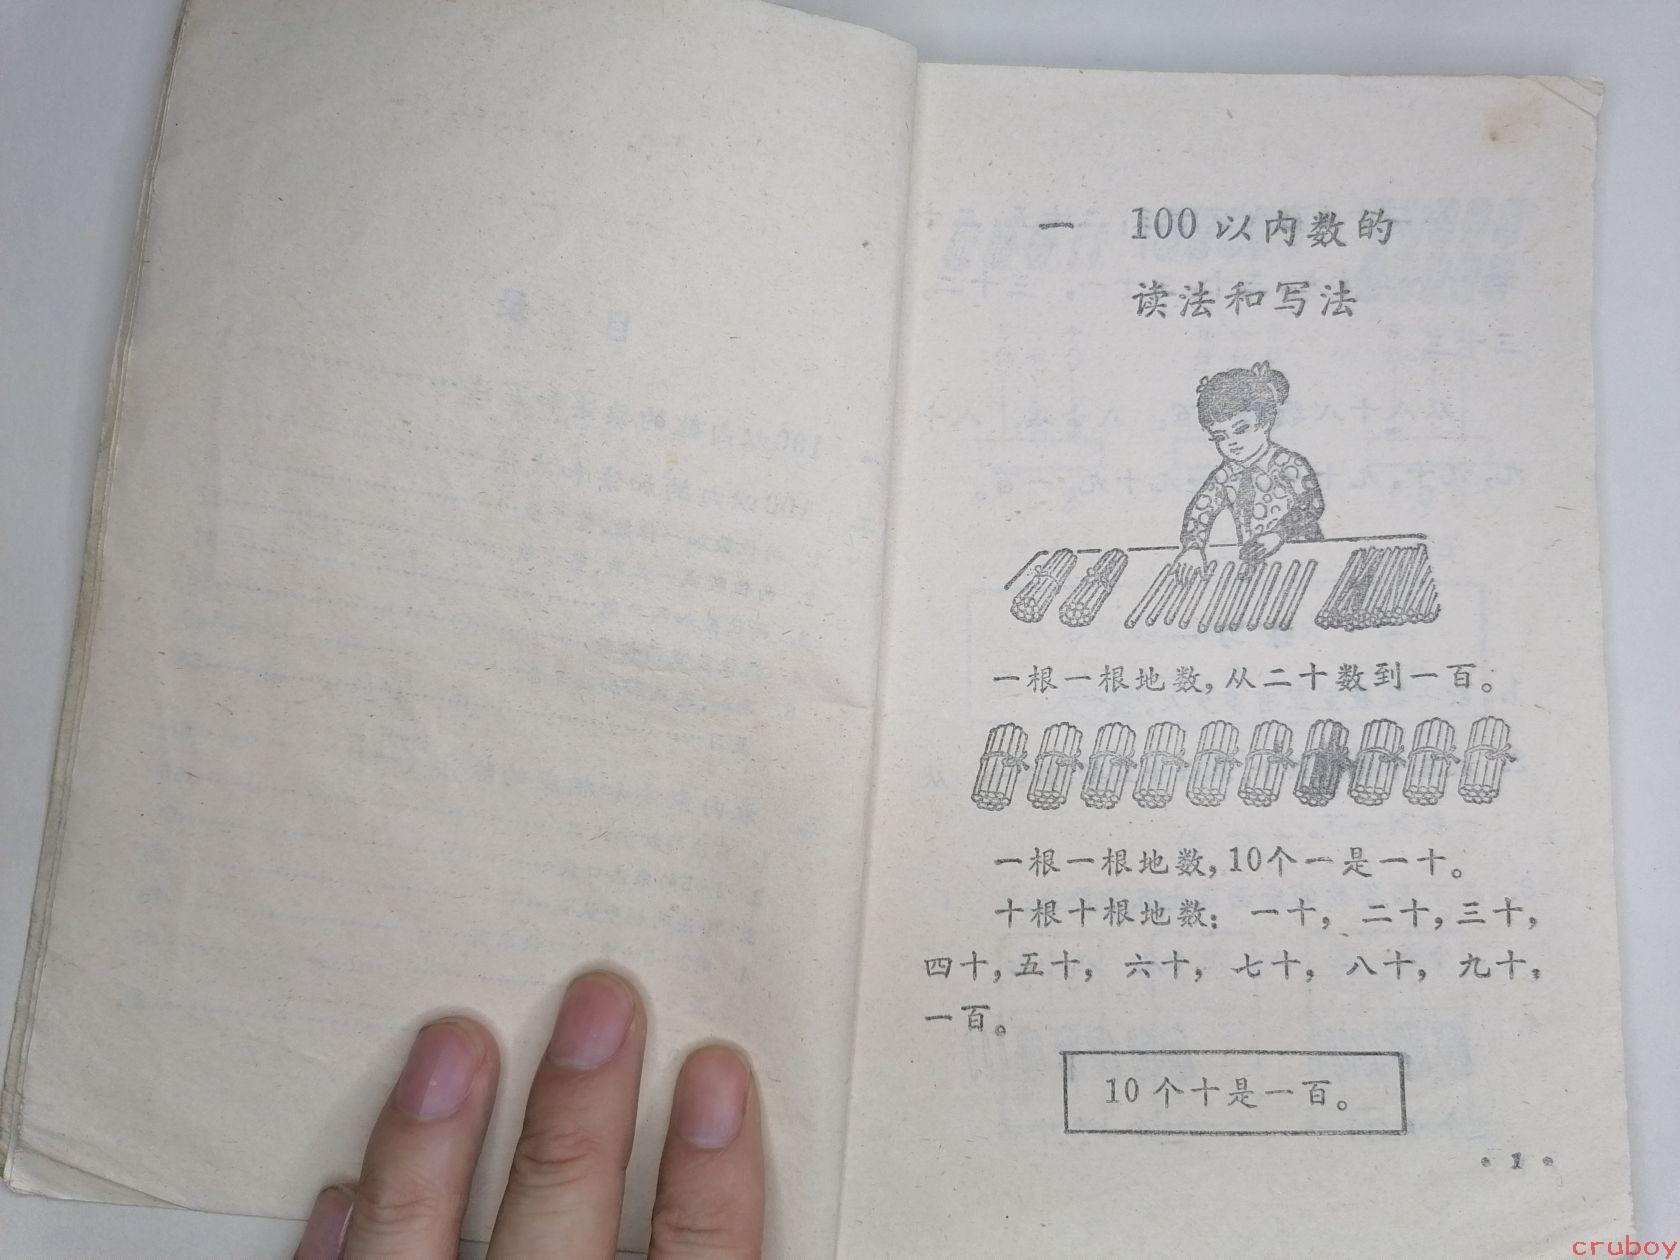 一 100以内数的
读法和写法
一根一根地数，从二十数到一百。
一根一根地数，10个一是一十。
十根十根地数： 一十， 二十，三十，
四十，五十， 六十， 七十， 八十， 九十，
一百。
10个十是一百。
• 1 •
cruboy